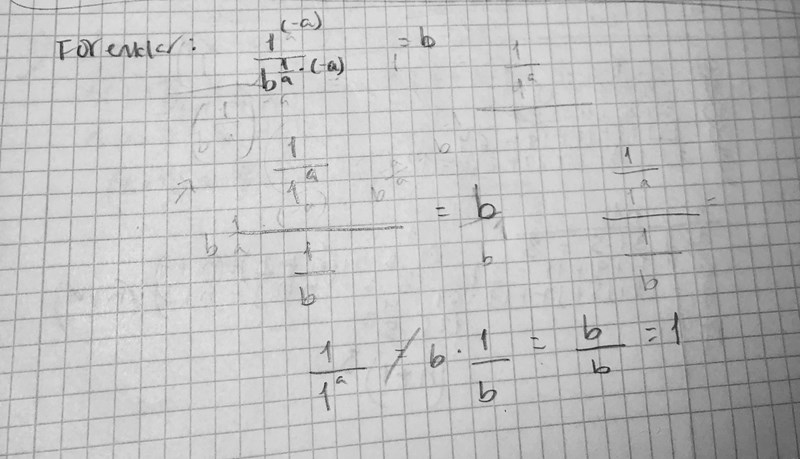 Forenkler: 1^(-a) / b^(1/a · (-a)) = b
1 / 1^a
(1 / 1^a) / (1 / b) = b
b
(1 / 1^a) / (1 / b) =
1 / 1^a = b · 1 / b = b / b = 1